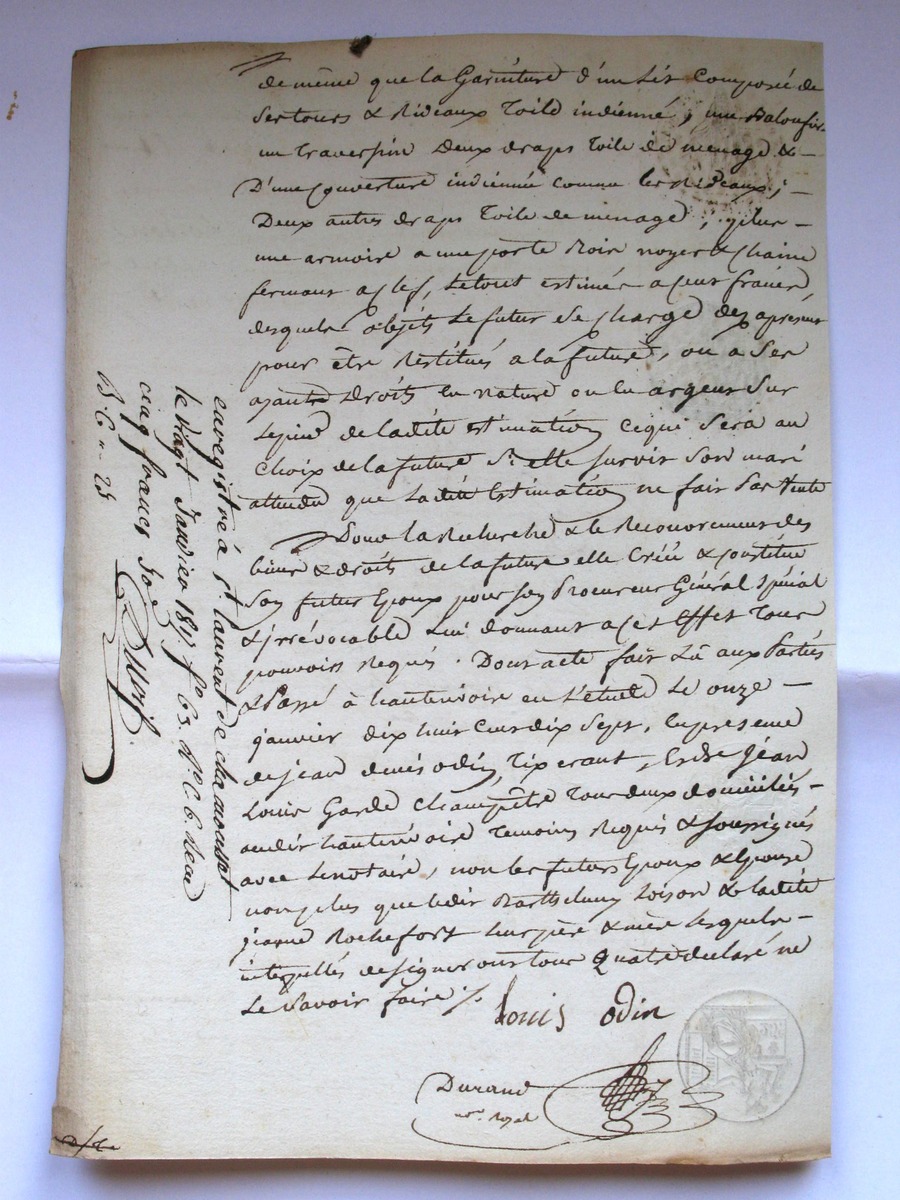 de même que la Garniture d'un Lit Composée de
Ses tours & Rideaux Toile indienne, une
un traversin Deux draps Toile de menage &
D'une Couverture indienne comme les Rideaux ;
Deux autres draps Toile de menage ; plus
une armoire a une porte Bois noyer &
fermant a clef, Le tout estimé a cent francs
desquels objets Le futur Se charge dez aprésent
pour être Restitués a la future, ou a Ses
ayants Droits en nature ou en argent Sur
Lepied de ladite estimation ce qui Sera au
Choix de la future Si elle survit Son mari
attendu que Ladite Estimation ne fait Pas Vente
Pour la Recherche & le Recouvrement des
biens & droits de la future elle Créé & constitue
Son futur Epoux pour son Procureur Général Spécial
& irrévocable Lui donnant a cet Effet Tous
pouvoirs Requis. Dont acte fait Lû aux Parties
& Passé à hauterivoire en L'etude Le onze
janvier dix huit Cent dix Sept, En presence
de jean denis odin Tixerant, & de Jéan
Louis Garde Champêtre Tous deux domiciliés
audit hauterivoire Temoins Requis & soussignés
avec Lenotaire, non les futurs Epoux & Epouse
non plus que ledit Barthelemy Loison & ladite
jeanne Rochefort leur père & mère lesquels
interpellés de signer ont tous Quatre declaré ne
Le Savoir faire ./.
Louis odin
Durand
no.re royal
enregistré à St Laurent de chamousset
le vingt Janvier 1817 fo 63. Ro C. 6. Reçu
cinq francs